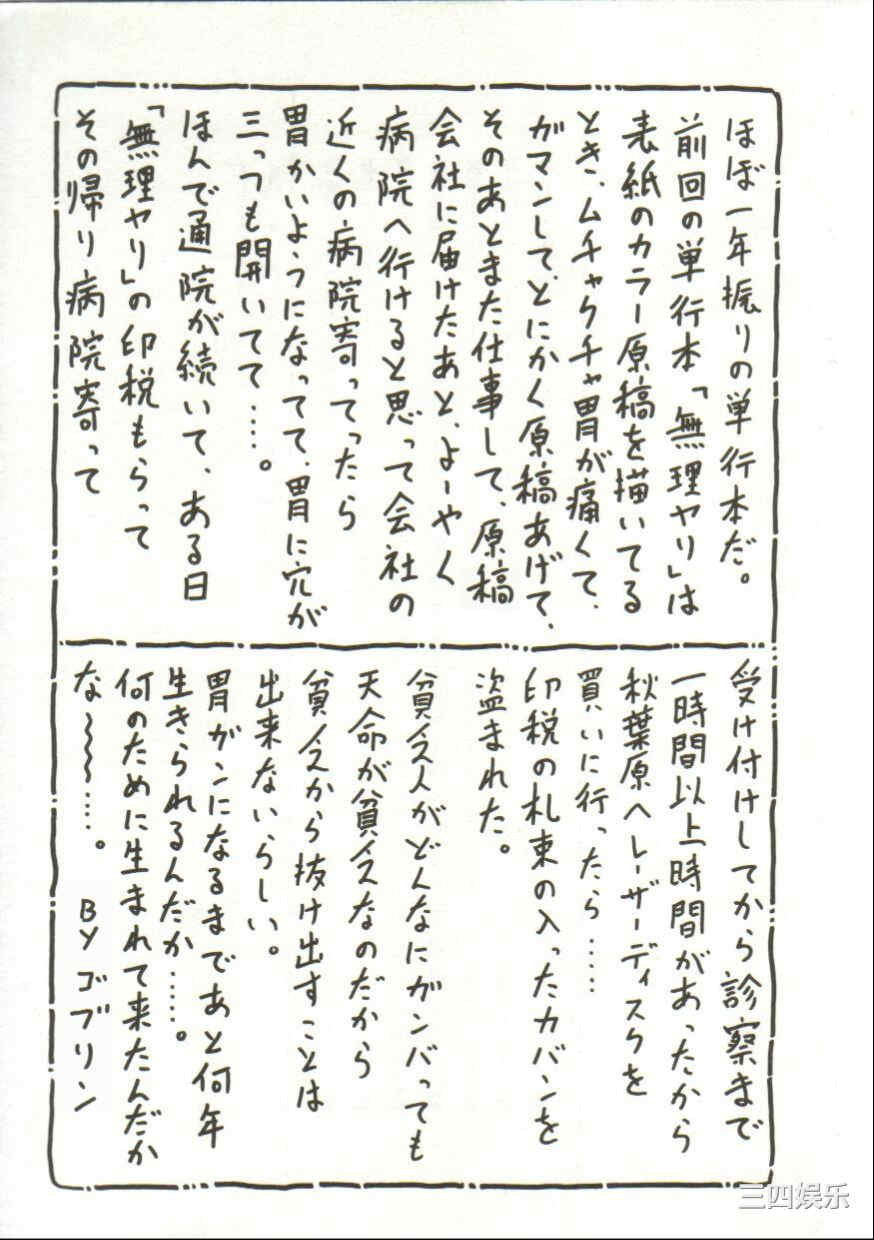 ほぼ一年振りの単行本だ。
前回の単行本「無理ヤリ」は
表紙のカラー原稿を描いてる
とき、ムチャクチャ胃が痛くて、
ガマンして、とにかく原稿あげて、
そのあとまた仕事して、原稿
会社に届けたあと、よーやく
病院へ行けると思って会社の
近くの病院寄ってったら
胃かいようになってて、胃に穴が
三っつも開いてて‥‥。
ほんで通院が続いて、ある日
「無理ヤリ」の印税もらって
その帰り病院寄って
受け付けしてから診察まで
一時間以上時間があったから
秋葉原へレーザーディスクを
買いに行ったら‥‥‥
印税の札束の入ったカバンを
盗まれた。
貧乏人がどんなにガンバっても
天命が貧乏なのだから
貧乏から抜け出すことは
出来ないらしい。
胃ガンになるまであと何年
生きられるんだか‥‥‥。
何のために生まれて来たんだか
な〜〜〜‥‥。
BY ゴブリン
三四娱乐